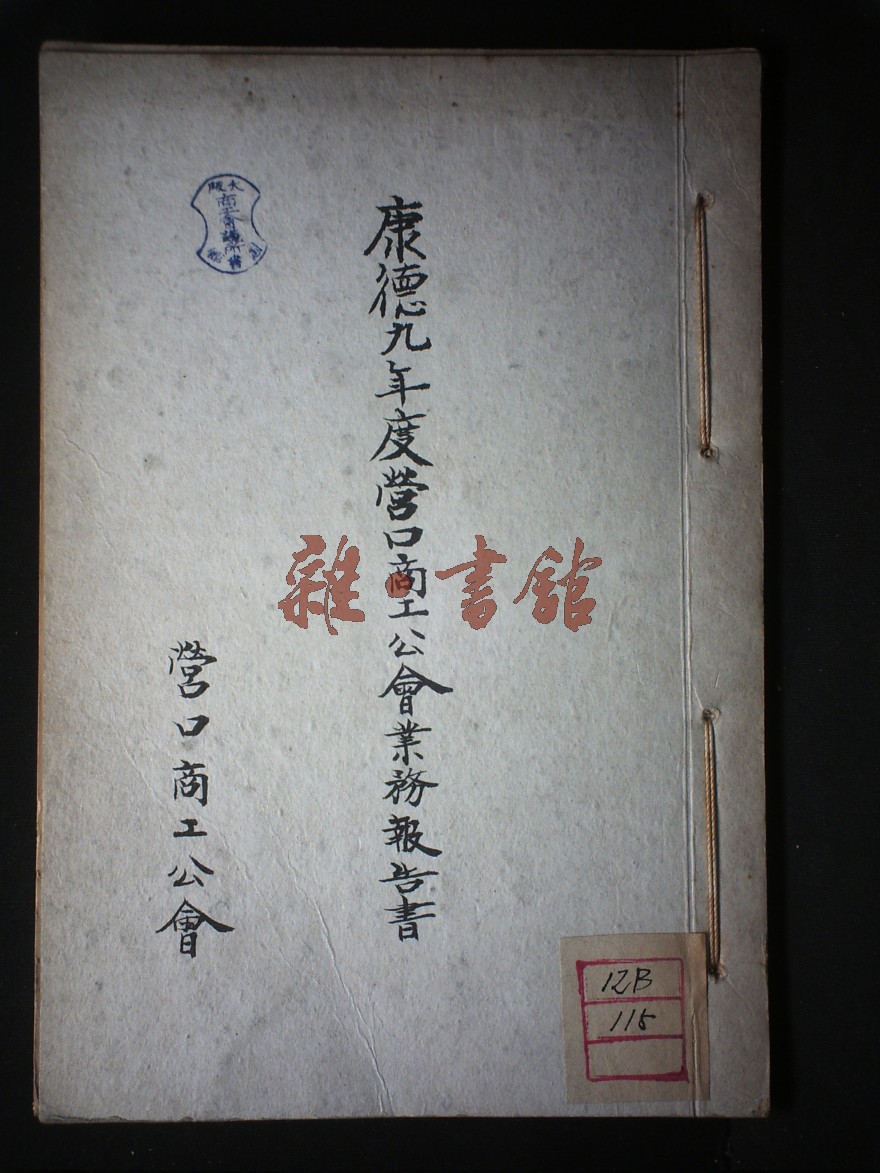 康德九年度營口商工公會業務報告書
營口商工公會
大阪
商工會議所
雜書館
12B
115